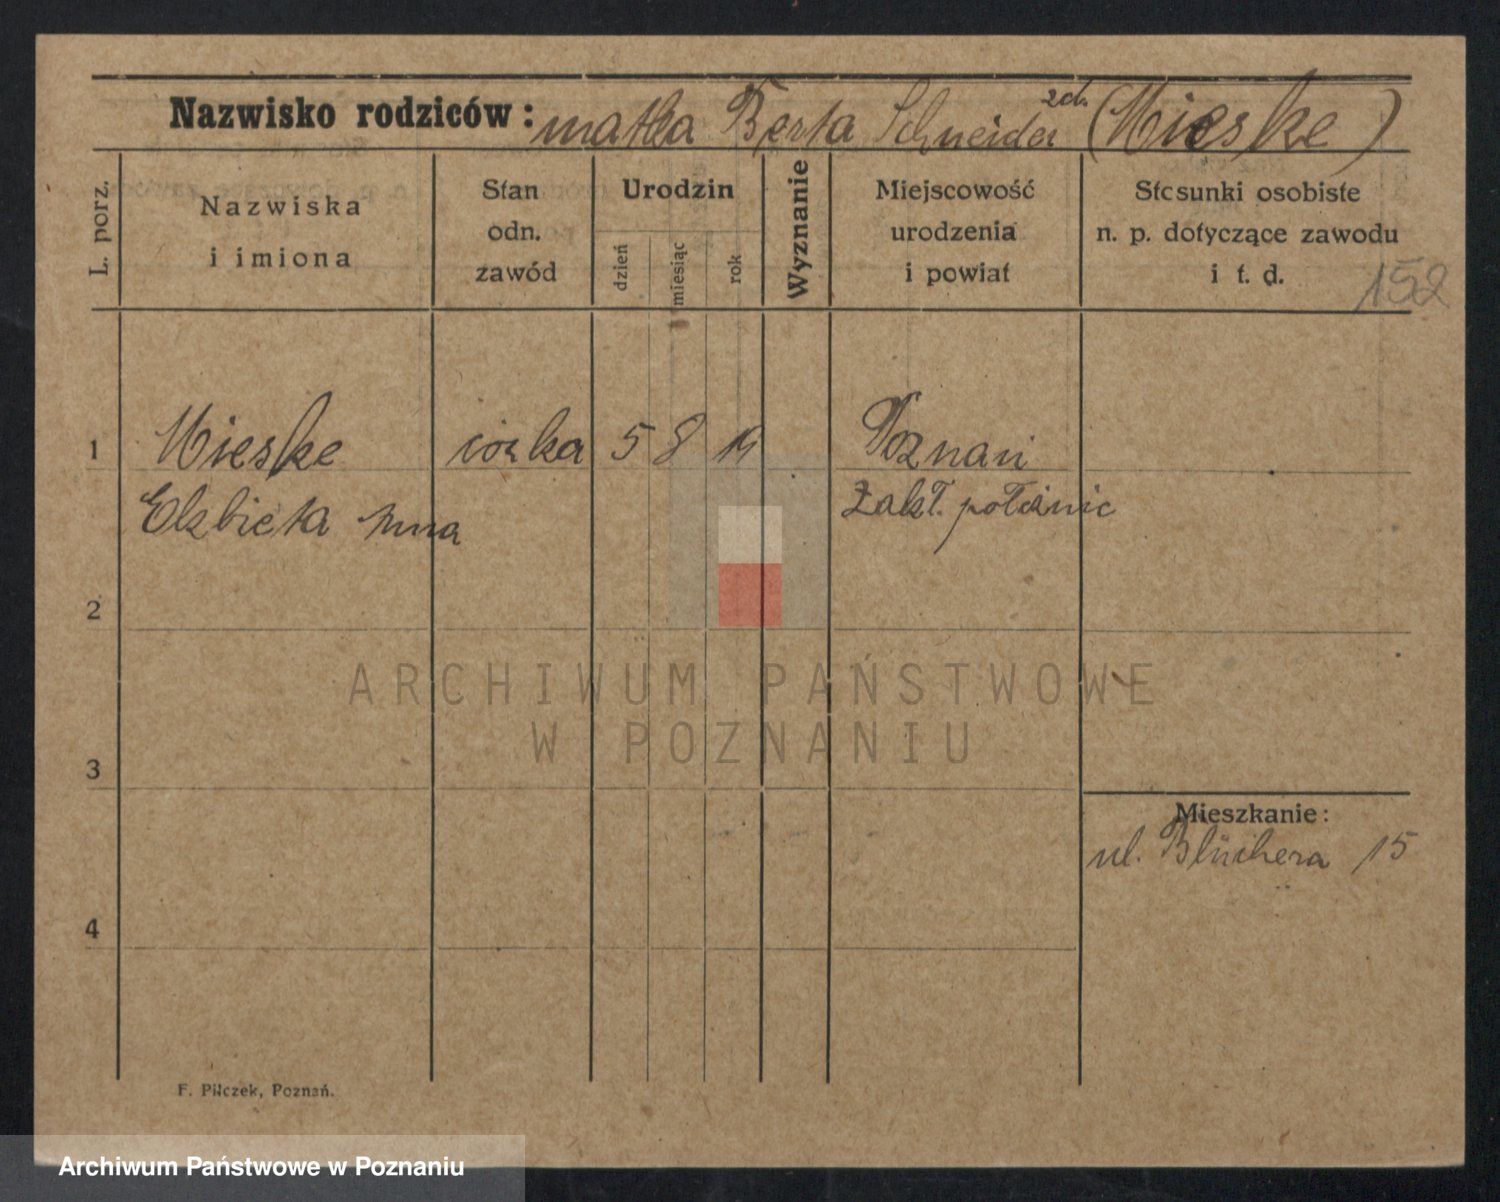 Nazwisko rodziców: matka Berta Schneider zd. (Mieske)
L. porz.
Nazwiska
i imiona
Stan
odn.
zawód
Urodzin
dzień
miesiąc
rok
Wyznanie
Miejscowość
urodzenia
i powiat
Stosunki osobiste
n. p. dotyczące zawodu
i t. d.
152
1
Mieske
córka
5 8 19
Poznań
Elzbieta Anna
Zakł. położnic
2
ARCHIWUM PAŃSTWOWE
W POZNANIU
3
Mieszkanie:
ul. Blüchera 15
4
F. Pilczek, Poznań.
Archiwum Państwowe w Poznaniu